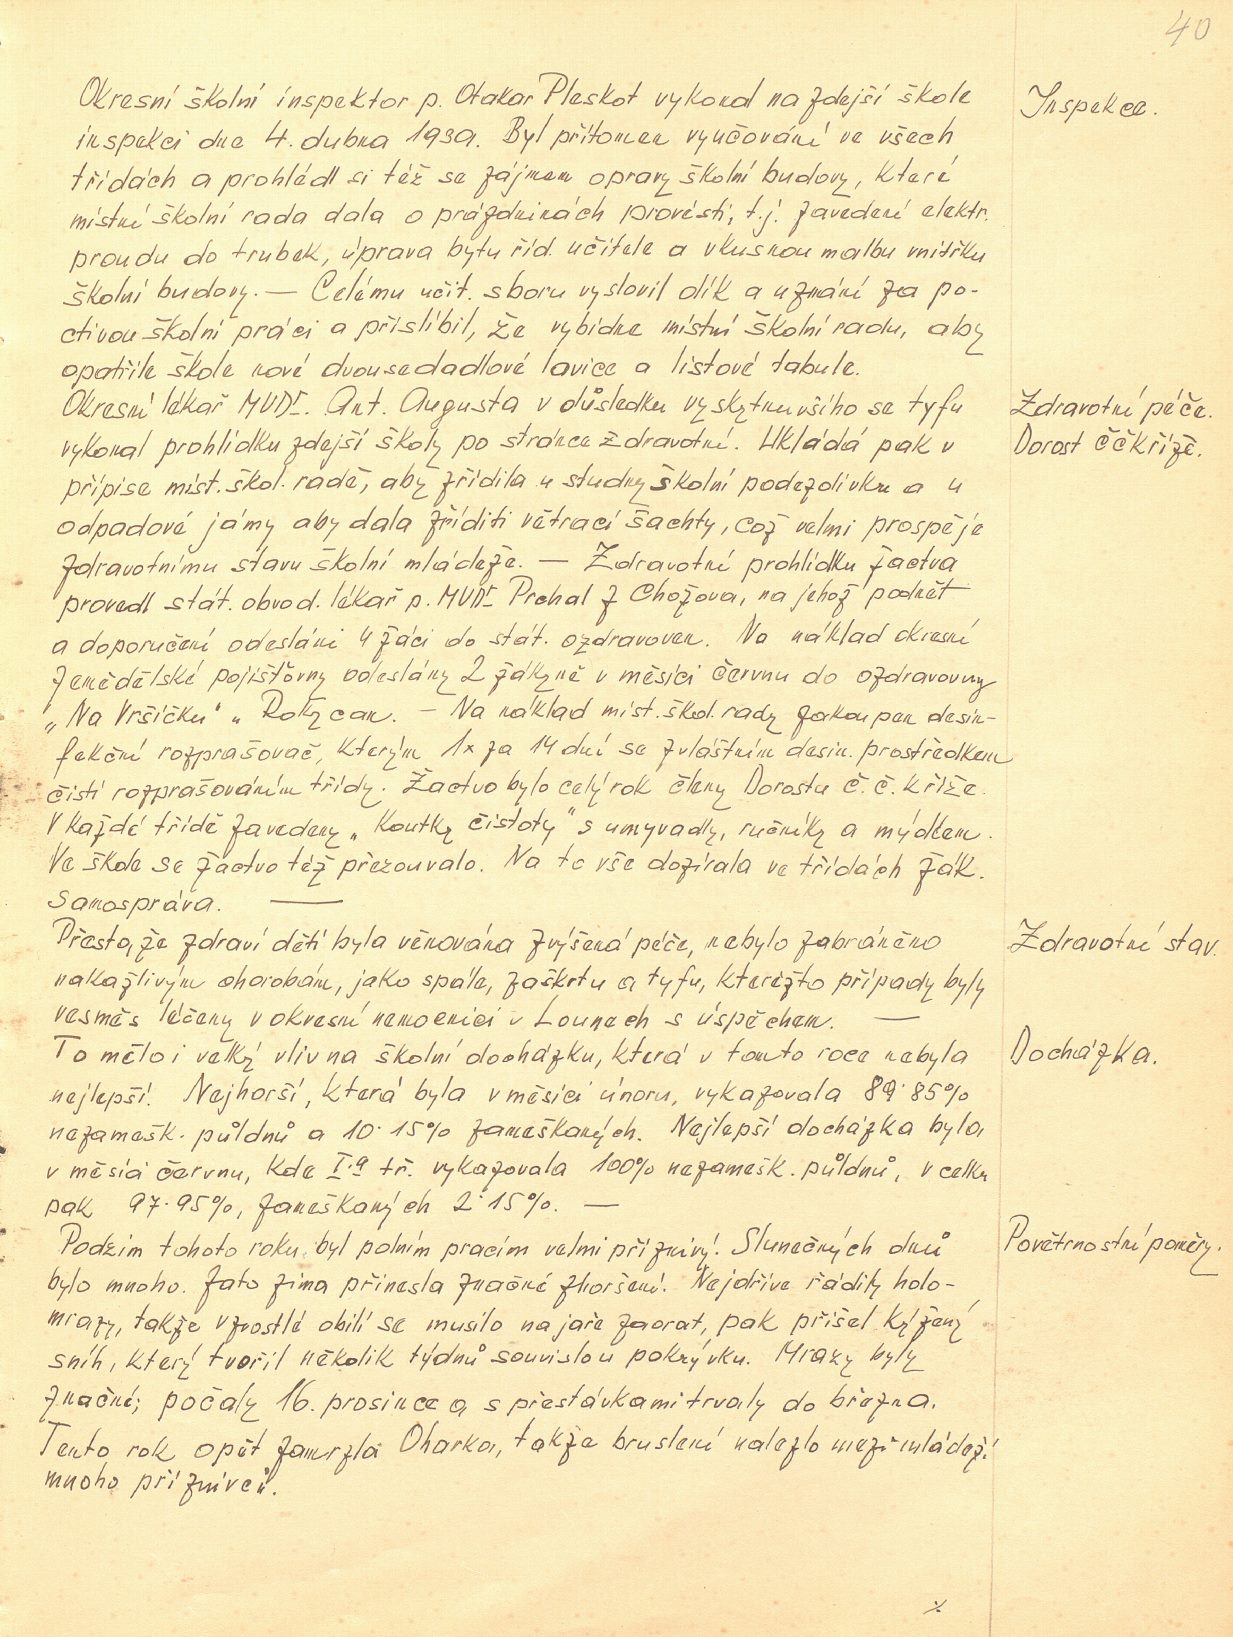 40
Okresní školní inspektor p. Otakar Pleskot vykonal na zdejší škole
Inspekce.
inspekci dne 4. dubna 1939. Byl přítomen vyučování ve všech
třídách a prohlédl si též se zájmem opravy školní budovy, které
místní školní rada dala o prázdninách provésti, t.j. zavedení elektr.
proudu do trubek, úprava bytu říd. učitele a vkusnou malbu vnitřku
školní budovy. — Celému učit. sboru vyslovil dík a uznání za po-
ctivou školní práci a přislíbil, že vybídne místní školní radu, aby
opatřila škole nové dvousedadlové lavice a listové tabule.
Okresní lékař MUDr. Ant. Augusta v důsledku vyskytnuvšího se tyfu
Zdravotní péče.
vykonal prohlídku zdejší školy po stránce zdravotní. Ukládá pak v
Dorost ČČKříže.
přípise míst. škol. radě, aby zřídila u studny školní podezdívku a u
odpadové jámy aby dala zříditi větrací šachty, což velmi prospěje
zdravotnímu stavu školní mládeže. — Zdravotní prohlídku žactva
provedl stát. obvod. lékař p. MUDr Prchal z Chožova, na jehož podnět
a doporučení odesláni 4 žáci do stát. ozdravoven. Na náklad okresní
zemědělské pojišťovny odeslány 2 žákyně v měsíci červnu do ozdravovny
„Na Vršíčku" u Rokycan. — Na náklad míst. škol. rady zakoupen desin-
fekční rozprašovač, kterým 1x za 14 dní se zvláštním desin. prostředkem
čistí rozprašováním třídy. Žactvo bylo celý rok členy Dorostu č.č. kříže.
V každé třídě zavedeny „Koutky čistoty" s umyvadly, ručníky a mýdlem.
Ve škole se žactvo též přezouvalo. Na to vše dozírala ve třídách žák.
samospráva. —
Přesto, že zdraví dětí byla věnována zvýšená péče, nebylo zabráněno
Zdravotní stav.
nakažlivým chorobám, jako spále, záškrtu a tyfu, kteréžto případy byly
vesměs léčeny v okresní nemocnici v Lounech s úspěchem. —
To mělo i velký vliv na školní docházku, která v tomto roce nebyla
Docházka.
nejlepší. Nejhorší, která byla v měsíci únoru, vykazovala 89·85%
nezamešk. půldnů a 10·15% zameškaných. Nejlepší docházka byla,
v měsíci červnu, kde I.a tř. vykazovala 100% nezamešk. půldnů, v celku
pak 97·95%, zameškaných 2·15%. —
Podzim tohoto roku byl polním pracím velmi příznivý. Slunečných dnů
Povětrnostní poměry.
bylo mnoho. Zato zima přinesla značné zhoršení. Nejdříve řádily holo-
mrazy, takže vzrostlé obilí se musilo na jaře zaorat, pak přišel kýžený
sníh, který tvořil několik týdnů souvislou pokrývku. Mrazy byly
značné; počaly 16. prosince a s přestávkami trvaly do března.
Tento rok opět zamrzla Oharka, takže bruslení nalezlo mezi mládeží
mnoho příznivců.
./.